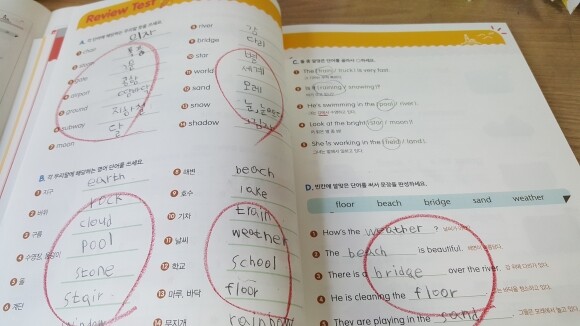 Review Test
A. 각 단어에 해당하는 우리말 뜻을 쓰세요.
chair 의자
gate 문
airport 공항
ground 땅바닥
subway 지하철
moon 달
river 강
bridge 다리
star 별
world 세계
sand 모래
snow 눈,
shadow 그림자
B. 각 우리말에 해당하는 영어 단어를 쓰세요.
지구 earth
바위 rock
구름 cloud
수영장, pool
돌 stone
계단 stair
해변 beach
호수 lake
기차 train
날씨 weather
학교 school
마루, 바닥 floor
무지개 rainbow
C. 둘 중 알맞은 단어를 골라서 ○하세요.
The (horse / truck) is very fast.
Is it (raining / snowing)?
He's swimming in the (pond / river).
Look at the bright (star / moon)!
She is working in the (field / land).
D. 빈칸에 알맞은 단어를 써서 문장을 완성하세요.
floor beach bridge sand weather
How's the weather ?
The beach is beautiful.
There is a bridge over the river.
He is cleaning the floor
They are playing in the sand